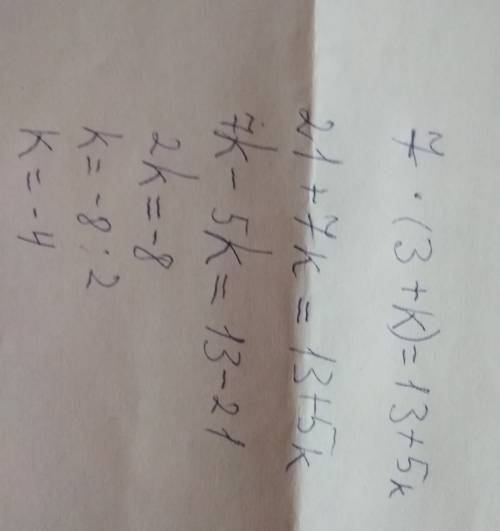 7 · (3 + k) = 13 + 5k
21 + 7k = 13 + 5k
7k - 5k = 13 - 21
2k = -8
k = -8 : 2
k = -4